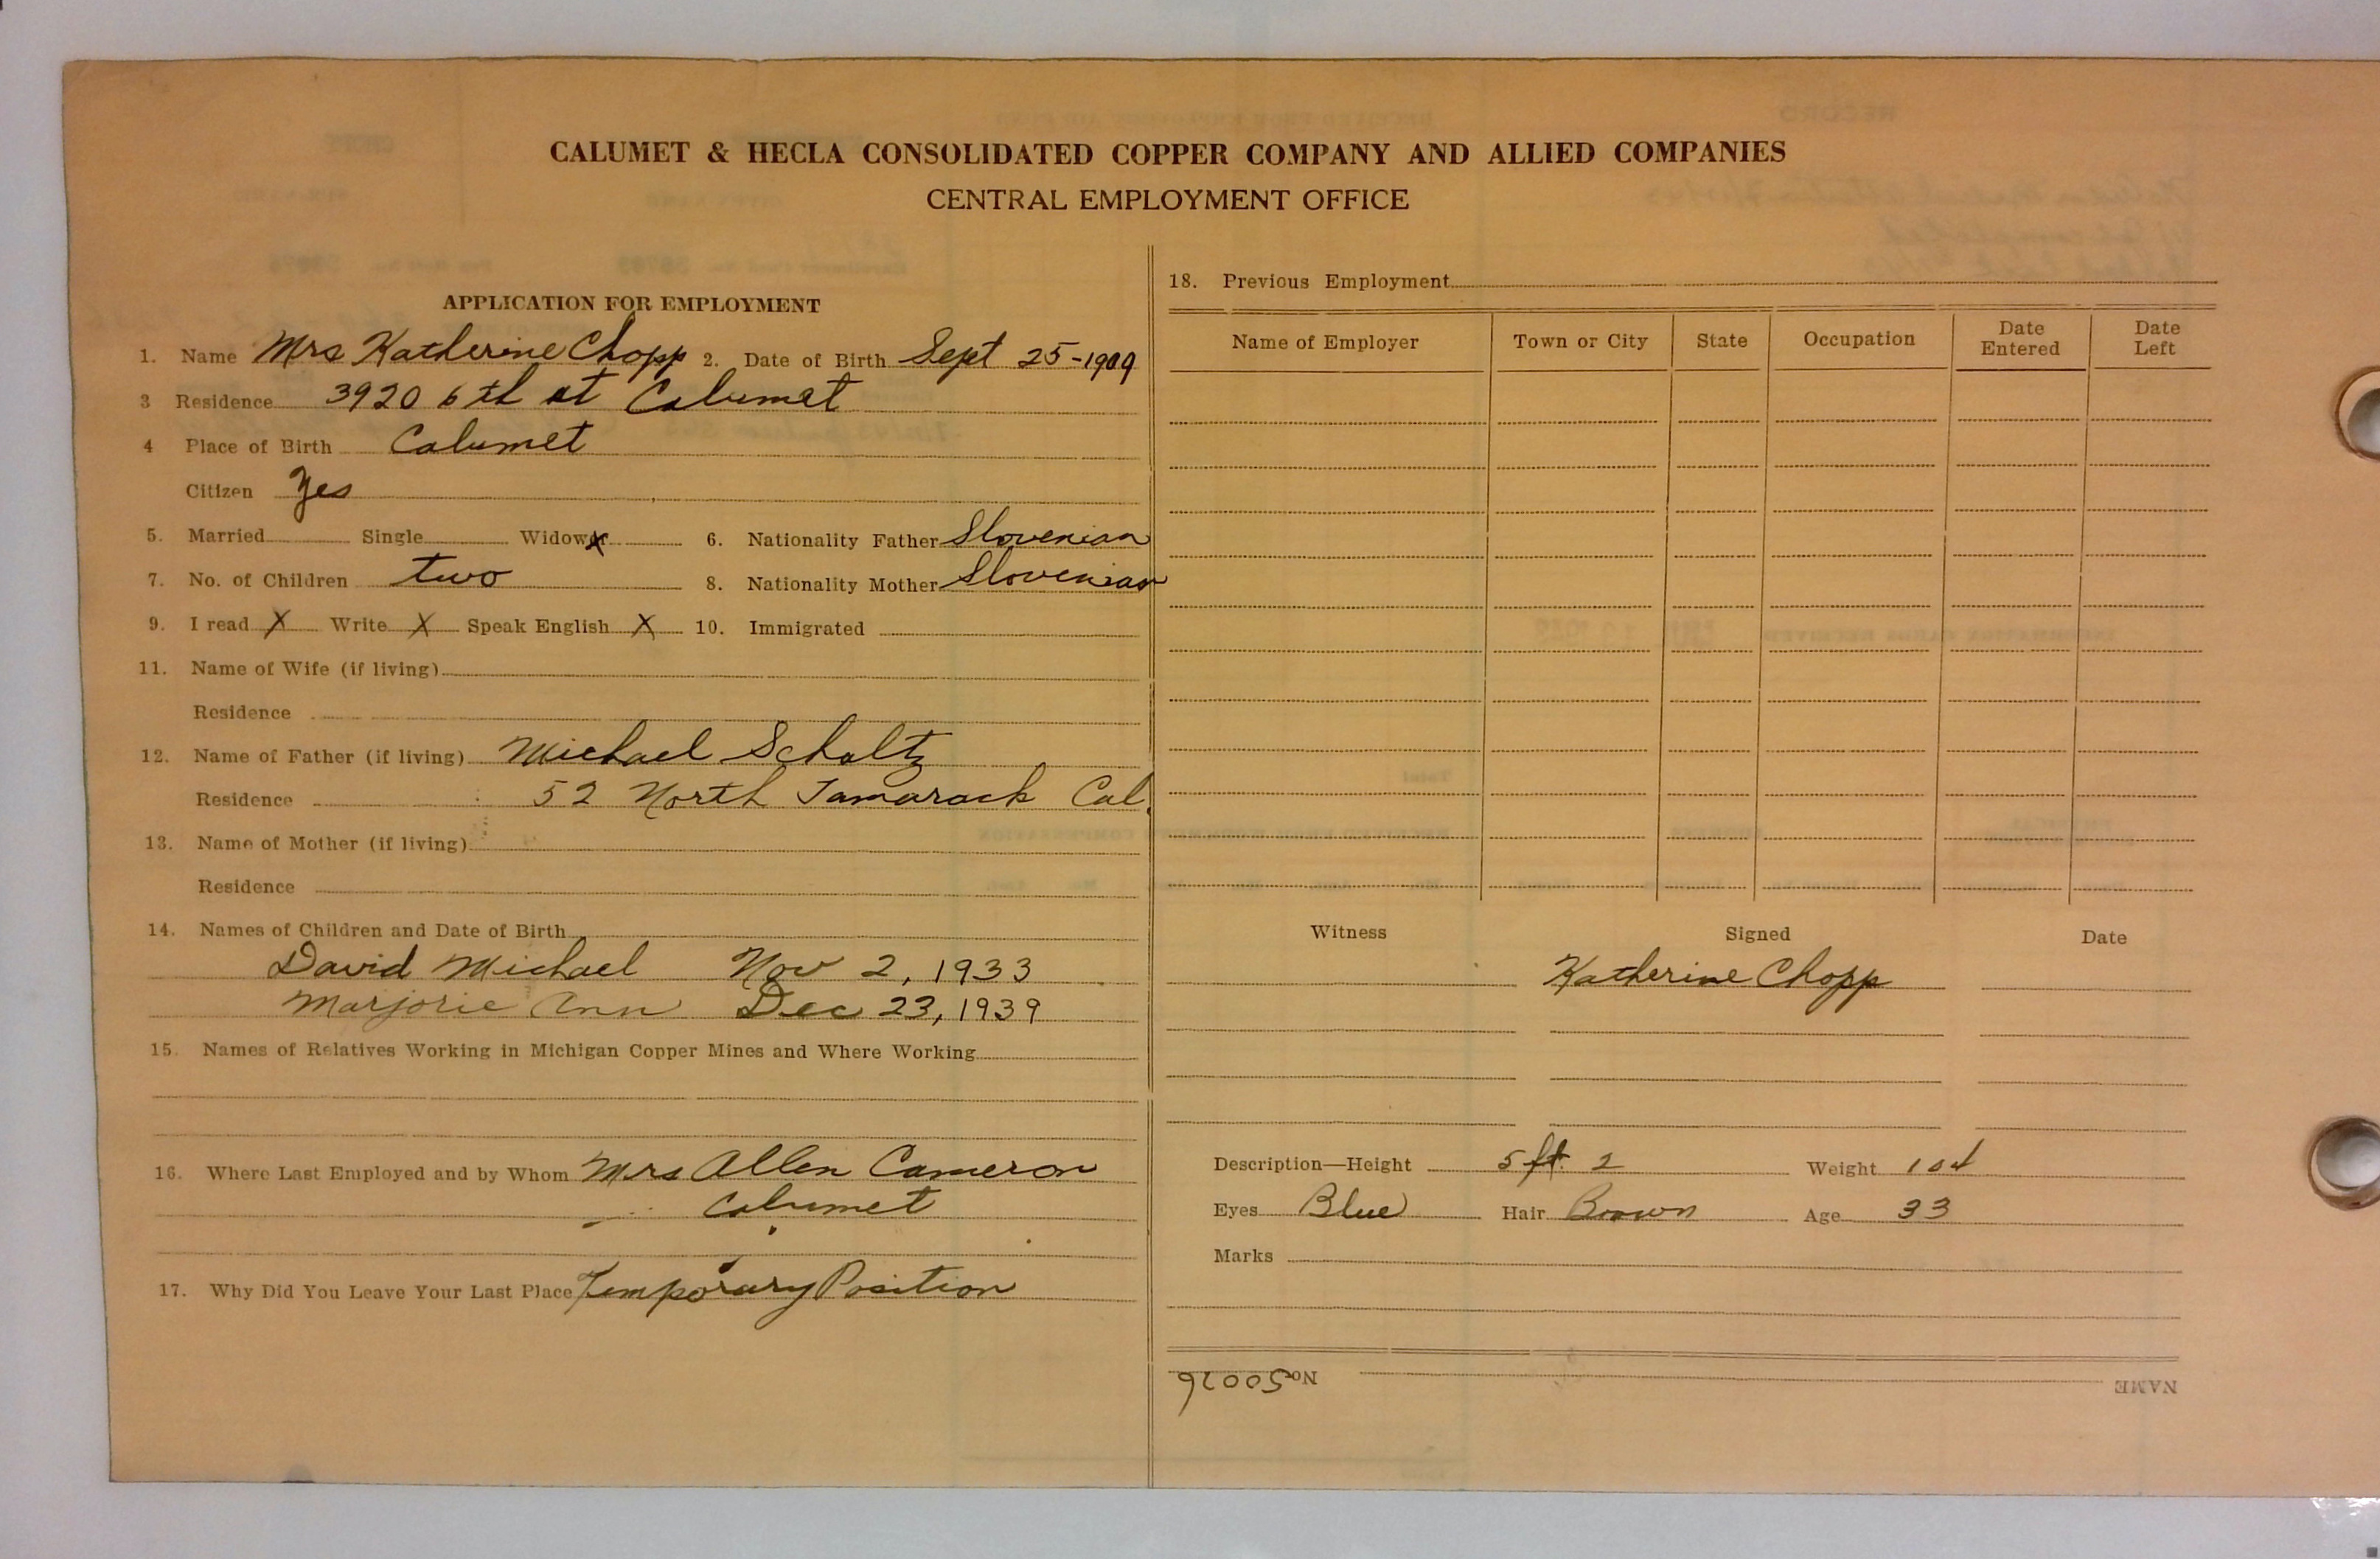 CALUMET & HECLA CONSOLIDATED COPPER COMPANY AND ALLIED COMPANIES
CENTRAL EMPLOYMENT OFFICE
APPLICATION FOR EMPLOYMENT
1. Name Mrs Katherine Chopp 2. Date of Birth Sept 25-1909
3 Residence 3920 6th st Calumet
4 Place of Birth Calumet
Citizen Yes
5. Married Single Widower X 6. Nationality Father Slovenian
7. No. of Children two 8. Nationality Mother Slovenian
9. I read X Write X Speak English X 10. Immigrated
11. Name of Wife (if living)
Residence
12. Name of Father (if living) Michael Scholtz
Residence 52 North Tamarack Cal.
13. Name of Mother (if living)
Residence
14. Names of Children and Date of Birth
David Michael Nov 2, 1933
Marjorie Ann Dec 23, 1939
15. Names of Relatives Working in Michigan Copper Mines and Where Working
16. Where Last Employed and by Whom Mrs Allen Cameron
Calumet
17. Why Did You Leave Your Last Place Temporary Position
18. Previous Employment
Name of Employer Town or City State Occupation Date Entered Date Left
Witness Signed Date
Katherine Chopp
Description—Height 5 ft. 2 Weight 104
Eyes Blue Hair Brown Age 33
Marks
NAME No. 50026